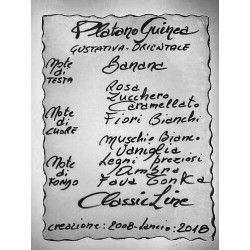 Platano Guinea
GUSTATIVA - ORIENTALE
Note di TESTA
Banana
Rosa
Zucchero Caramellato
Note di CUORE
Fiori Bianchi
Muschio Bianco
Vaniglia
Note di FONDO
Legni Preziosi
Ambra
Fava Tonka
Classic Line
creazione: 2008 - Lancio: 2018